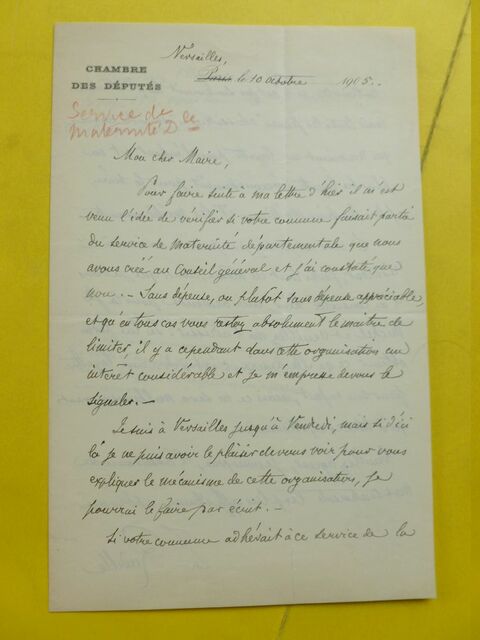 CHAMBRE
DES DÉPUTÉS
Service de
maternité Dle
Versailles,
Paris, le 10 octobre 1905.
Mon cher Maire,
Pour faire suite à ma lettre d'hier il m'est
venu l'idée de vérifier si votre commune faisait partie
du service de maternité départementale que nous
avons créé au Conseil général et j'ai constaté que
non. - Sans dépense, ou plutôt sans dépense appréciable
et qu'en tous cas vous restez absolument le maître de
limiter, il y a cependant dans cette organisation un
intérêt considérable et je m'empresse de vous le
signaler. -
Je suis à Versailles jusqu'à Vendredi, mais si d'ici
là je ne puis avoir le plaisir de vous voir pour vous
expliquer le mécanisme de cette organisation, je
pourrai le faire par écrit. -
Si votre commune adhérait à ce service de la